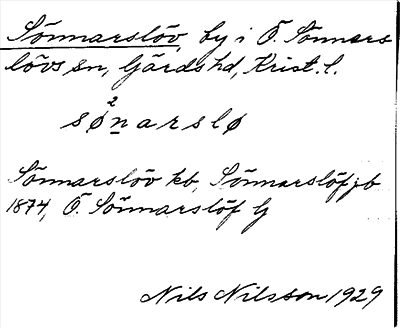 Sönnarslöv, by i Ö. Sönnars
lövs sn, Gärds hd, Krist. l.
sø²narslø
Sönnarslöv kb, Sönnarslöf jb
1874, Ö. Sönnarslöf G
Nils Nilsson 1929